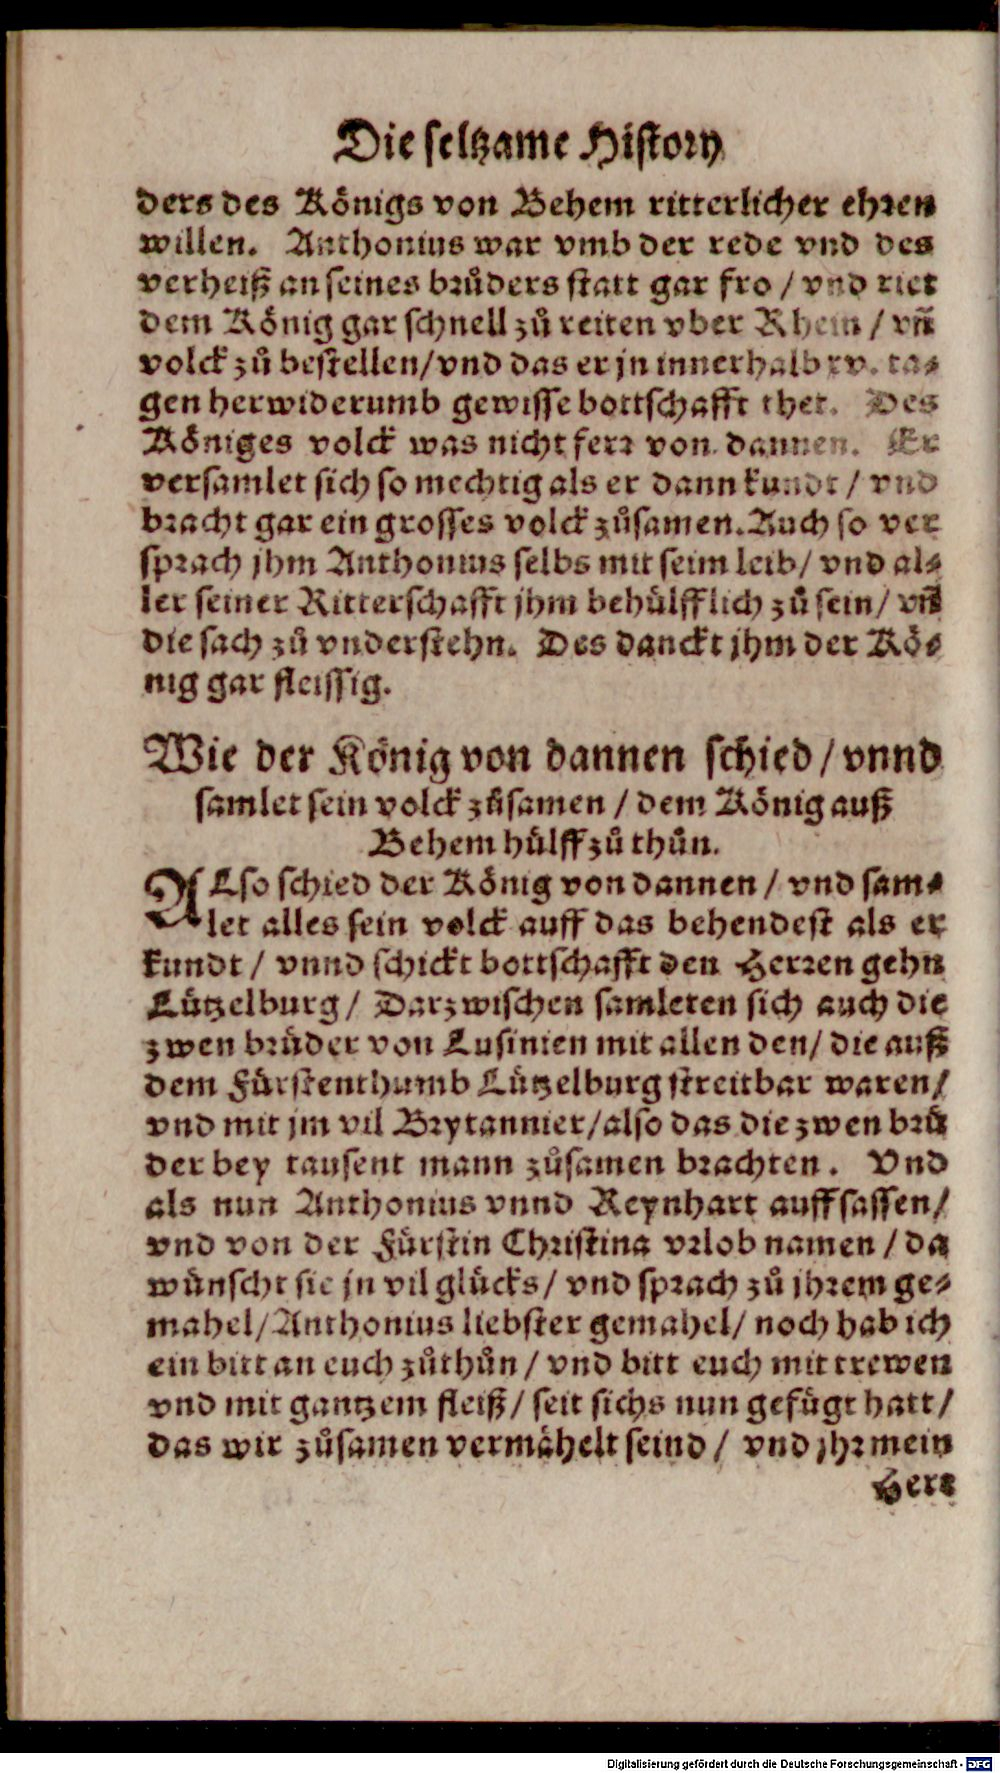 Die seltzame History
ders des Königs von Behem ritterlicher ehren
willen. Anthonius war vmb der rede vnd des
verheiß an seines brůders statt gar fro / vnd riet
dem König gar schnell zů reiten vber Rhein / vñ
volck zů bestellen/vnd das er jn innerhalb xv. ta⸗
gen herwiderumb gewisse bottschafft thet. Des
Königes volck was nicht ferr von dannen. Er
versamlet sich so mechtig als er dann kundt / vnd
bracht gar ein grosses volck zůsamen. Auch so ver
sprach jhm Anthonius selbs mit seim leib/ vnd al⸗
ler seiner Ritterschafft jhm behülfflich zů sein/ vñ
die sach zů vnderstehn. Des danckt jhm der Kö⸗
nig gar fleissig.
Wie der König von dannen schied / vnnd
samlet sein volck zůsamen / dem König auß
Behem hülff zů thůn.
ALso schied der König von dannen / vnd sam⸗
let alles sein volck auff das behendest als er
kundt / vnnd schickt bottschafft den Herren gehn
Lützelburg/ Darzwischen samleten sich auch die
zwen brüder von Lusinien mit allen den/ die auß
dem Fürstenthumb Lützelburg streitbar waren/
vnd mit jm vil Brytannier/also das die zwen brü
der bey tausent mann zůsamen brachten. Vnd
als nun Anthonius vnnd Reynhart auffsassen/
vnd von der Fürstin Christina vrlob namen / da
wünscht sie jn vil glücks/ vnd sprach zů jhrem ge⸗
mahel/Anthonius liebster gemahel/ noch hab ich
ein bitt an euch zůthůn / vnd bitt euch mit trewen
vnd mit gantzem fleiß/ seit sichs nun gefügt hatt/
das wir zůsamen vermähelt seind / vnd jhr mein
Herr
Digitalisierung gefördert durch die Deutsche Forschungsgemeinschaft - DFG